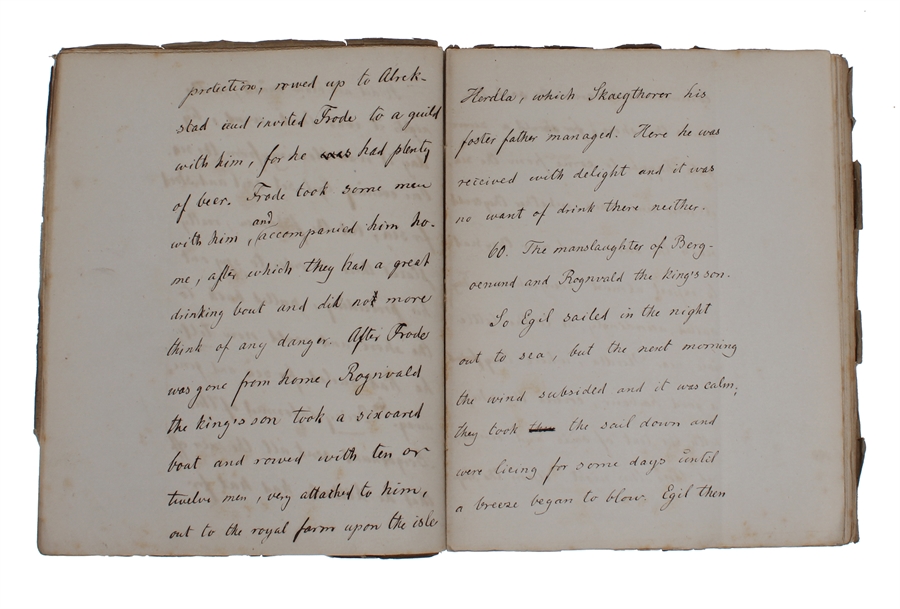 protection, rowed up to Alrek-
stad and invited Frode to a guild
with him, for he was had plenty
of beer. Frode took some men
and
with him, accompanied him ho-
me, after which they had a great
drinking bout and did not more
think of any danger. After Frode
was gone from home, Rognvald
the king's son took a sixoared
boat and rowed with ten or
twelve men, very attached to him,
out to the royal farm upon the isle
Herdla, which Skaegthorer his
foster father managed. Here he was
reicived with delight and it was
no want of drink there neither.
60. The manslaughter of Berg-
oenund and Rognvald the king's son.
So Egil sailed in the night
out to sea, but the next morning
the wind subsided and it was calm;
they took the sail down and
were lieing for some days until
a breeze began to blow. Egil then